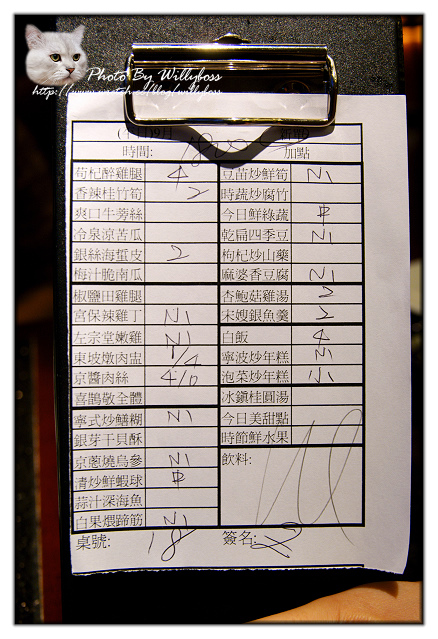 Photo By Willyboss
時間: 加點
荀杞醉雞腿 4 豆苗炒鮮筍 小
香辣桂竹筍 2 時蔬炒腐竹
爽口牛蒡絲 今日鮮綠蔬 中
冷泉涼苦瓜 乾扁四季豆 小
銀絲海蜇皮 2 枸杞炒山藥
梅汁脆南瓜 麻婆香豆腐 小
椒鹽田雞腿 杏鮑菇雞湯 2
宮保辣雞丁 小 宋嫂銀魚羹 2
左宗堂嫩雞 小 白飯 4
東坡燉肉盅 1/4 寧波炒年糕 小
京醬肉絲 4/6 泡菜炒年糕 小
喜鵲敬全體 冰鎮桂圓湯
寧式炒鱔糊 小 今日美甜點
銀芽干貝酥 時節鮮水果
京蔥燒烏參 小 飲料:
清炒鮮蝦球 中
蒜汁深海魚
白果煨蹄筋 小
桌號: 18 簽名: